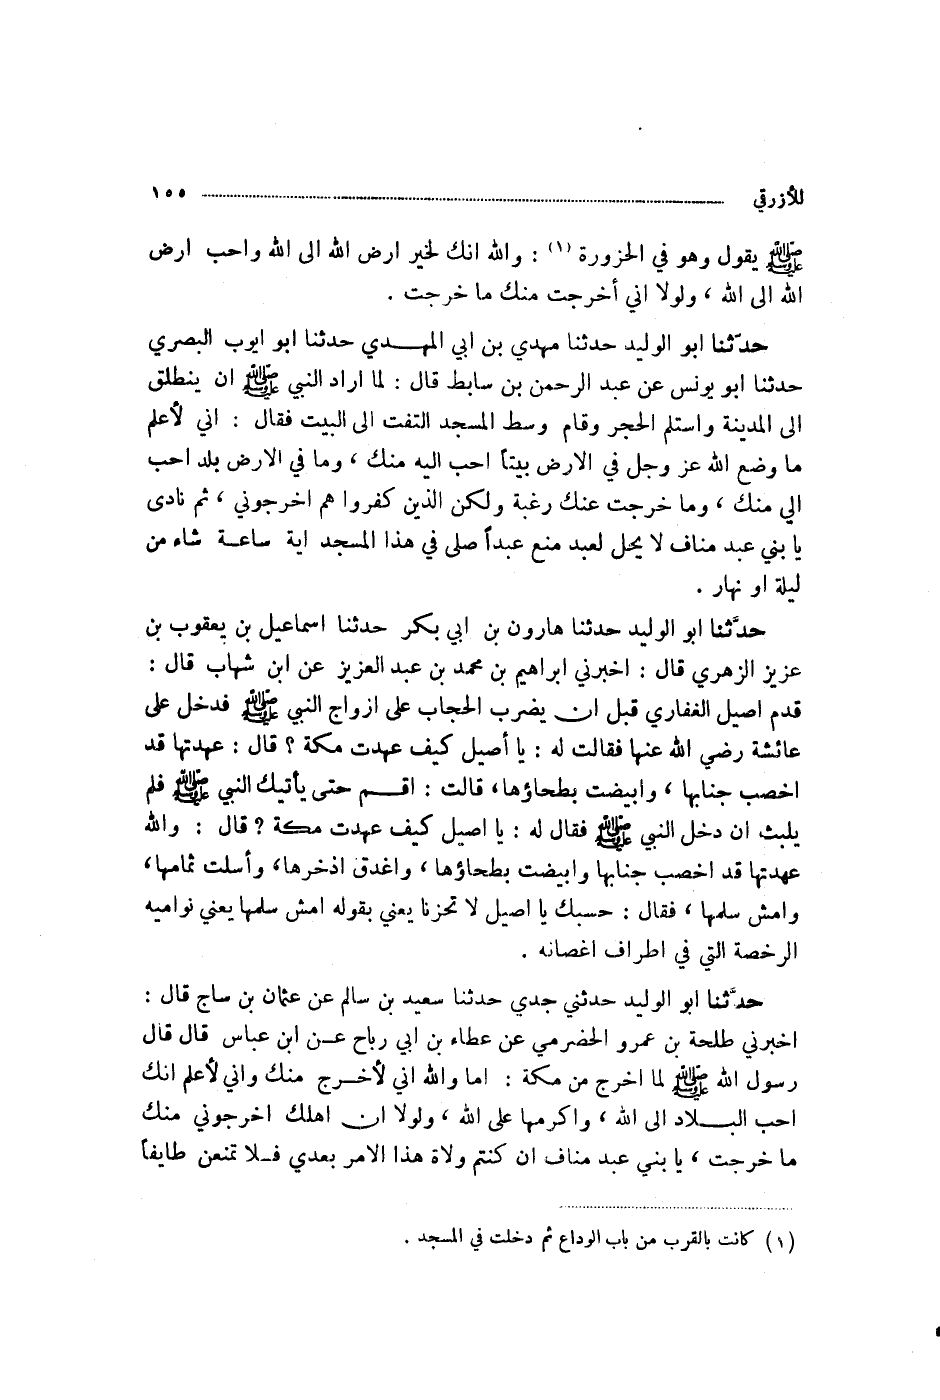 للأزرقي ١٥٥
ﷺ يقول وهو في الحزورة (١) : والله انك لخير ارض الله الى الله واحب ارض
الله الى الله ، ولولا اني أخرجت منك ما خرجت .
حدّثنا ابو الوليد حدثنا مهدي بن ابي المهدي حدثنا ابو ايوب البصري
حدثنا ابو يونس عن عبد الرحمن بن سابط قال : لما اراد النبي ﷺ ان ينطلق
الى المدينة واستلم الحجر وقام وسط المسجد التفت الى البيت فقال : اني لأعلم
ما وضع الله عز وجل في الارض بيتاً احب اليه منك ، وما في الارض بلد احب
الي منك ، وما خرجت عنك رغبة ولكن الذين كفروا هم اخرجوني ، ثم نادى
يا بني عبد مناف لا يحل لعبد منع عبداً صلى في هذا المسجد اية ساعة شاء من
ليلة او نهار .
حدَّثنا ابو الوليد حدثنا هارون بن ابي بكر حدثنا اسماعيل بن يعقوب بن
عزيز الزهري قال : اخبرني ابراهيم بن محمد بن عبد العزيز عن ابن شهاب قال :
قدم اصيل الغفاري قبل ان يضرب الحجاب على ازواج النبي ﷺ فدخل على
عائشة رضي الله عنها فقالت له : يا أصيل كيف عهدت مكة ؟ قال : عهدتها قد
اخصب جنابها ، وابيضت بطحاؤها، قالت : اقم حتى يأتيك النبي ﷺ فلم
يلبث ان دخل النبي ﷺ فقال له : يا اصيل كيف عهدت مكة ؟ قال : والله
عهدتها قد اخصب جنابها وابيضت بطحاؤها ، واغدق اذخرها، وأسلت ثمامها،
وامش سلمها ، فقال : حسبك يا اصيل لا تحزنا يعني بقوله امش سلمها يعني نواميه
الرخصة التي في اطراف اغصانه .
حدَّثنا ابو الوليد حدثني جدي حدثنا سعيد بن سالم عن عثمان بن ساج قال :
اخبرني طلحة بن عمرو الحضرمي عن عطاء بن ابي رباح عن ابن عباس قال قال
رسول الله ﷺ لما اخرج من مكة : اما والله اني لأخرج منك واني لأعلم انك
احب البلاد الى الله ، واكرمها على الله ، ولولا ان اهلك اخرجوني منك
ما خرجت ، يا بني عبد مناف ان كنتم ولاة هذا الامر بعدي فلا تمنعن طايفاً
(١) كانت بالقرب من باب الوداع ثم دخلت في المسجد .